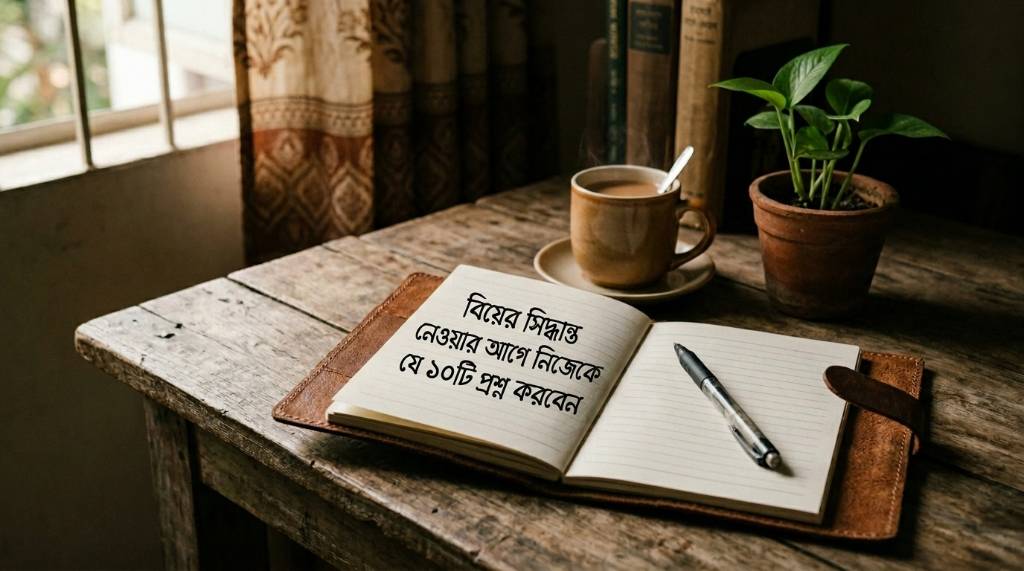 বিয়ের সিদ্ধান্ত
নেওয়ার আগে নিজেকে
যে ১০টি প্রশ্ন করবেন